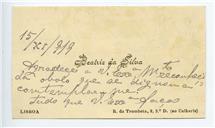 15/XI/919
Beatriz da Silva
Agradece a V. Exª Mto
da obolo que se dignou
contemplar que
Tudo que V. Exª faças
LISBOA
R. da Trombeta, 8, 2.º D. (ao Calhariz)